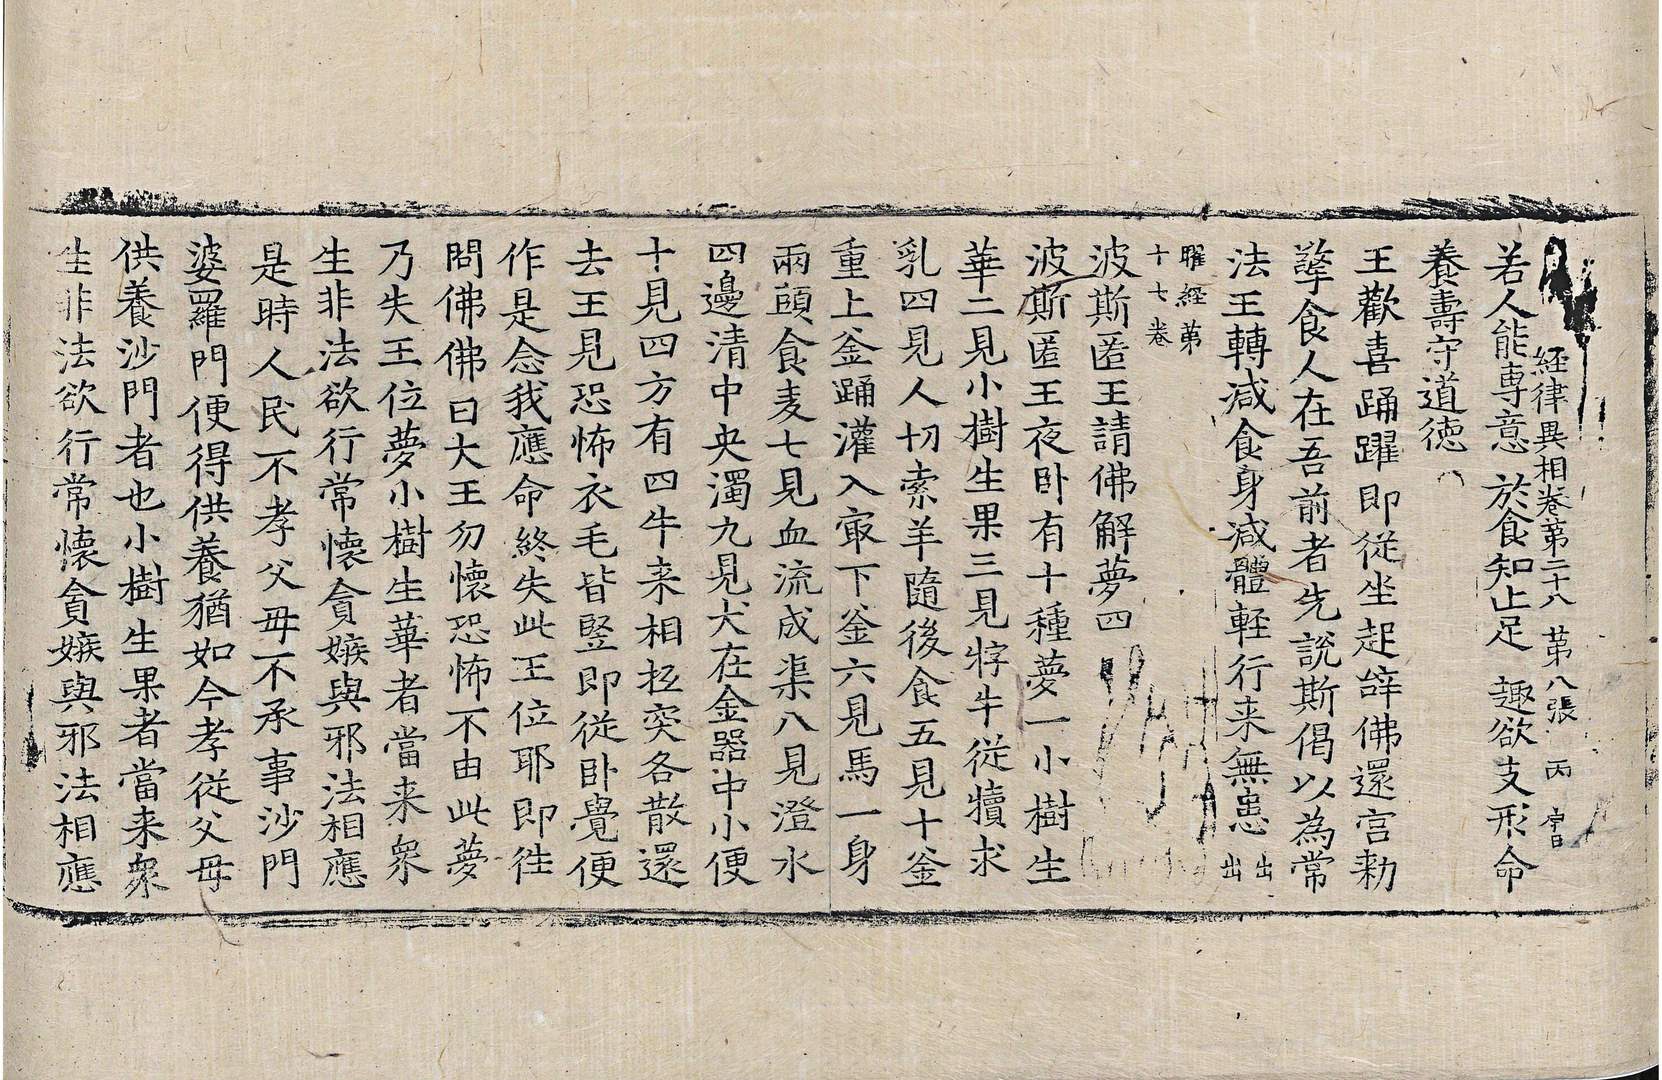 経律異相卷第二十八 第八張 丙 字日
若人能專意 於食知止足 趣欲支形命
養壽守道徳
王歡喜踊躍即従坐起辝佛還宫勑
擎食人在吾前者先說斯偈以為常
法王轉減食身減體輕行来無患 出出
曜経第十七卷
波斯匿王請佛解夢四
波斯匿王夜卧有十種夢一小樹生
華二見小樹生果三見牸牛従犢求
乳四見人切索羊隨後食五見十釜
重上釜踊灌入冣下釜六見馬一身
兩頭食麦七見血流成渠八見澄水
四邊清中央濁九見犬在金器中小便
十見四方有四牛来相抵突各散還
去王見恐怖衣毛皆竪即従卧覺便
作是念我應命終失此王位耶即徃
問佛佛曰大王勿懷恐怖不由此夢
乃失王位夢小樹生華者當来衆
生非法欲行常懷貪嫉與邪法相應
是時人民不孝父母不承事沙門
婆羅門便得供養猶如今孝従父母
供養沙門者也小樹生果者當来衆
生非法欲行常懷貪嫉與邪法相應